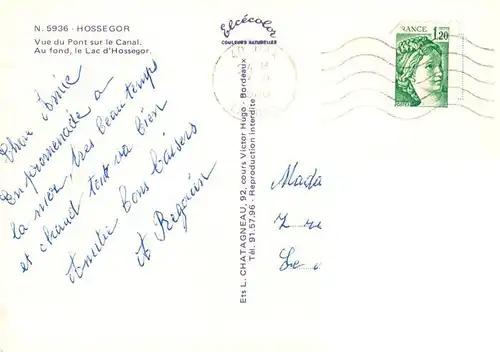 N. 5936 - HOSSEGOR
Vue du Pont sur le Canal.
Au fond, le Lac d'Hossegor.
Elcécolor
COULEURS NATURELLES
FRANCE
1,20
Chère Amie
En promenade a
la mer, très beau temps
et chaud tout va bien
Amitié Bons baisers
A
Ets L. CHATAGNEAU, 92, cours Victor Hugo - Bordeaux
Tél. 91.57.96 - Reproduction interdite
Mada